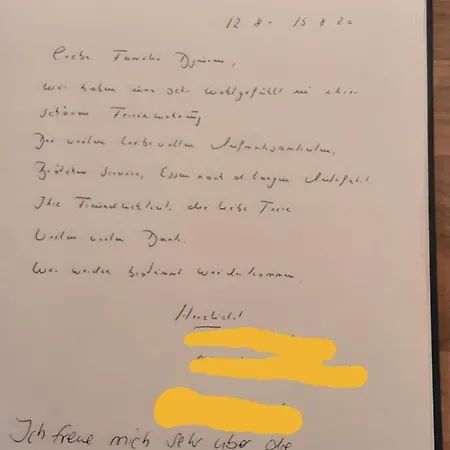 12.8 - 15.8.20
Liebe Familie
wir haben uns sehr wohlgefühlt in ihrer
schönen Ferienwohnung
Die vielen liebevollen Aufmerksamkeiten,
Brötchen Service, Essen nach d. langen Autofahrt
Ihre Freundlichkeit, der liebe
Vielen vielen Dank.
Wir werden bestimmt wiederkommen.
Herzlichst
Ich freue mich sehr über die